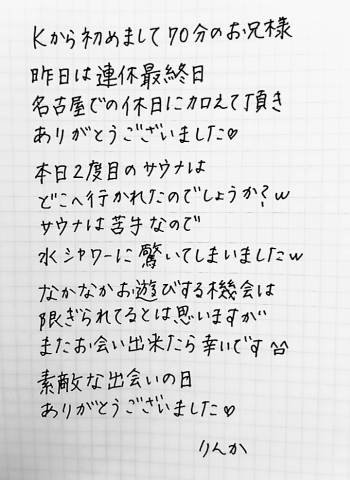 Kから初めまして70分のお兄様
昨日は連休最終日
名古屋での休日に加えて頂き
ありがとうございました♡
本日2度目のサウナは
どこへ行かれたのでしょうか？w
サウナは苦手なので
水シャワーに驚いてしまいましたw
なかなかお遊びする機会は
限ぎられてるとは思いますが
またお会い出来たら幸いです^^
素敵な出会いの日
ありがとうございました♡
りんか